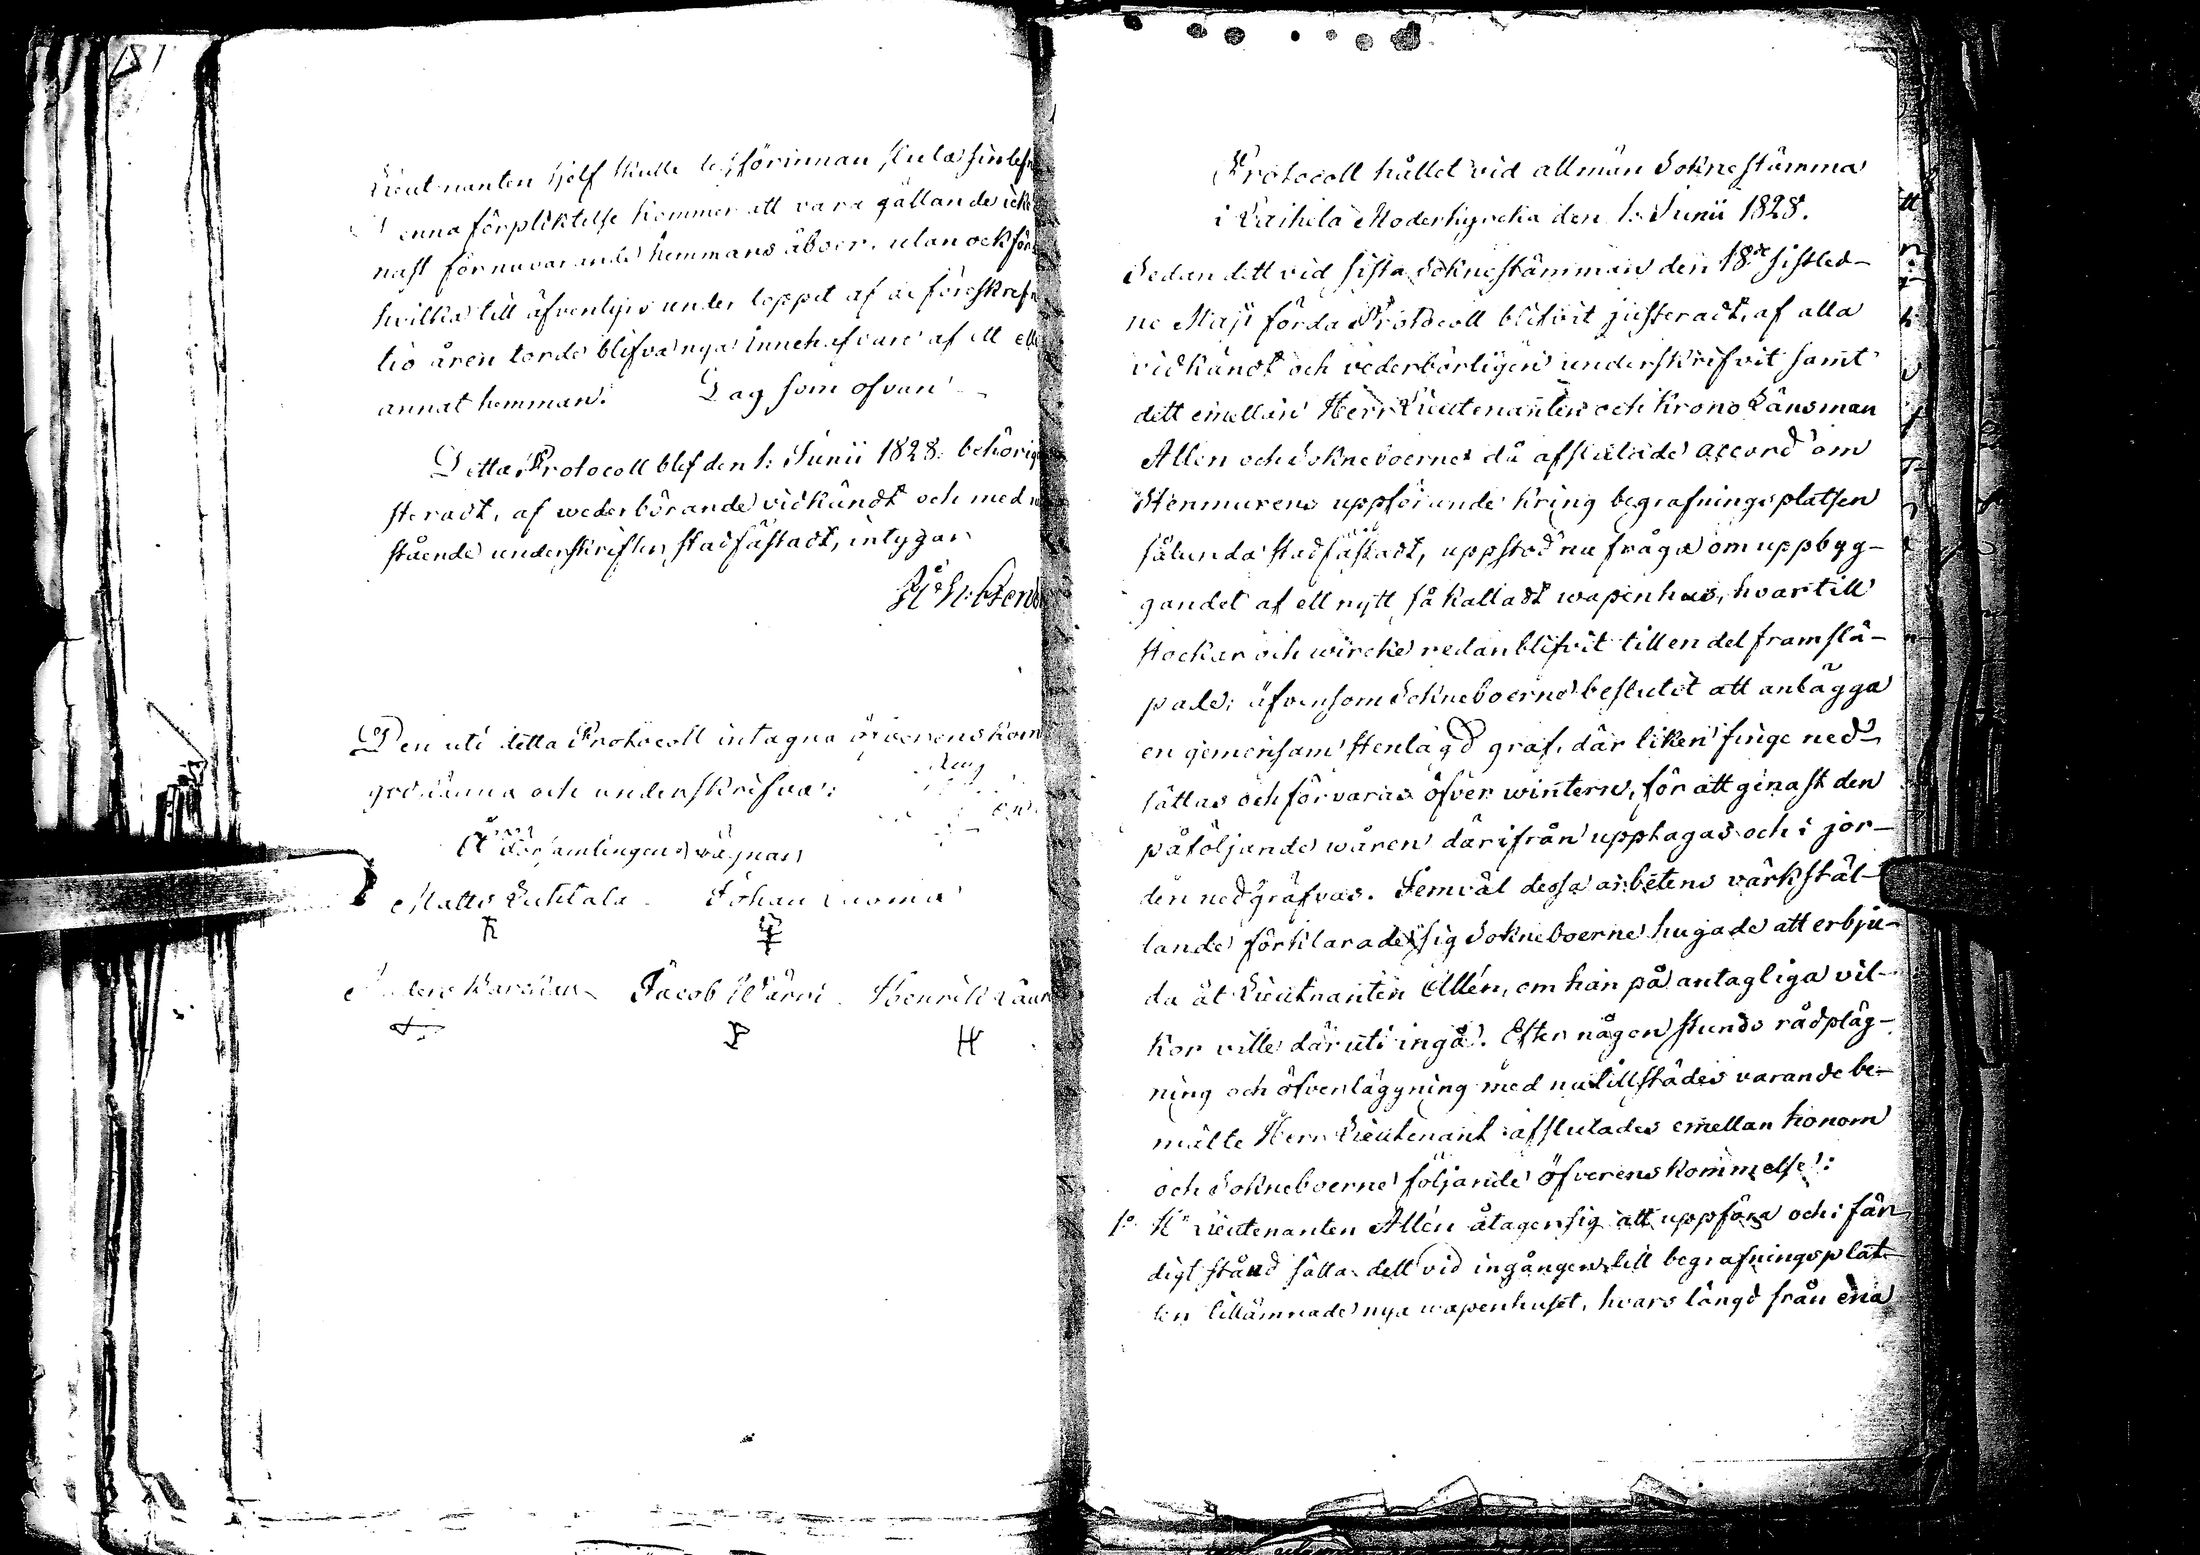 Lieutnanten sjelf skulle dessförinnan sluta sin lefn
Denna förpliktelse kommer att vara gällande icke
nast för nuvarande hemmans åboer, utan ock för
hvilka till äfventyrs under loppet af de föreskrefn
tio åren torde blifva nya innehafvare af ett elle
annat hemman. Dag som ofvan
Detta Protocoll blef den 1: Junii 1828. behörig
steradt, af wederbörande vidkändt och med
stående underskrifter stadfästadt, intygar
Den uti detta Protocoll intagna öfverenskom
godkänna och underskrifva:
Å Församlingens vägnar
Matts Luhtala Johan Luoma
Jacob Wärri Henrik
H
Protocoll hållet vid allmän Soknestämma
i Moderkyrcka den 1. Junii 1828.
Sedan dett vid sista Soknestämman den 18de sistled-
ne Maji förda Protocoll blifvit justeradt, af alla
vidkändt och vederbörligen underskrifvit samt
dett emellan Herr Lieutenanten och Krono Länsman
Allén och Sokneboerne då afslutade accord om
Stenmurens uppförande kring begrafningsplatsen
sålunda stadfästadt, uppstod nu fråga om uppbyg-
gandet af ett nytt så kalladt wapenhus, hvartill
stockar och wircke redan blifvit till en del framslä-
pade; äfvensom Sokneboerne beslutit att anlägga
en gemensam stenlagd graf, där liken finge ned-
sättas och förvaras öfver wintern, för att genast den
påföljande wåren därifrån upptagas och i jor-
den nedgräfvas. Jemväl dessa arbetens värkstäl-
lande förklarade sig Sokneboerne hugade att erbju-
da åt Lieutnanten Allén, om han på antagliga vil-
kor ville däruti ingå. Efter någon stunds rådpläg-
ning och öfverläggning med nu tillstädes varande be-
mälte Herr Lieutenant afslutades emellan honom
och Sokneboerne följande öfverenskommelse:
1o Hr Lieutenanten Allén åtager sig att uppföra och i fär-
digt stånd sätta dett vid ingången till begrafningsplat-
sen tillämnade nya wapenhuset, hvars längd från ena